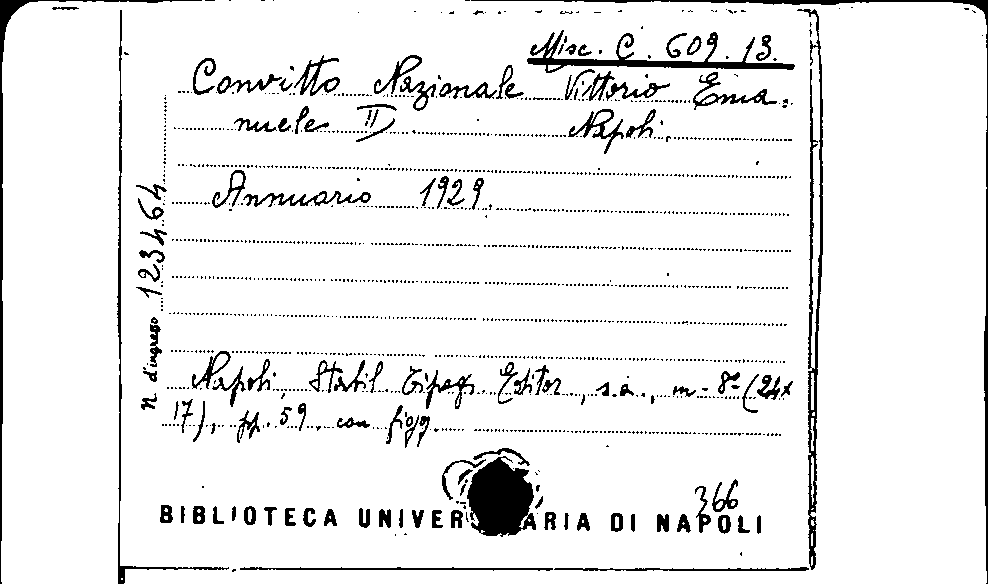 Misc. C. 609. 13.
Convitto Nazionale Vittorio Ema=
nuele II. Napoli.
Annuario 1929.
N. d'ingresso 123464
Napoli, Stabil. Tipogr. Editor., s.a., in-8° (24x
17), pp. 59. con figg.
366
BIBLIOTECA UNIVER ARIA DI NAPOLI